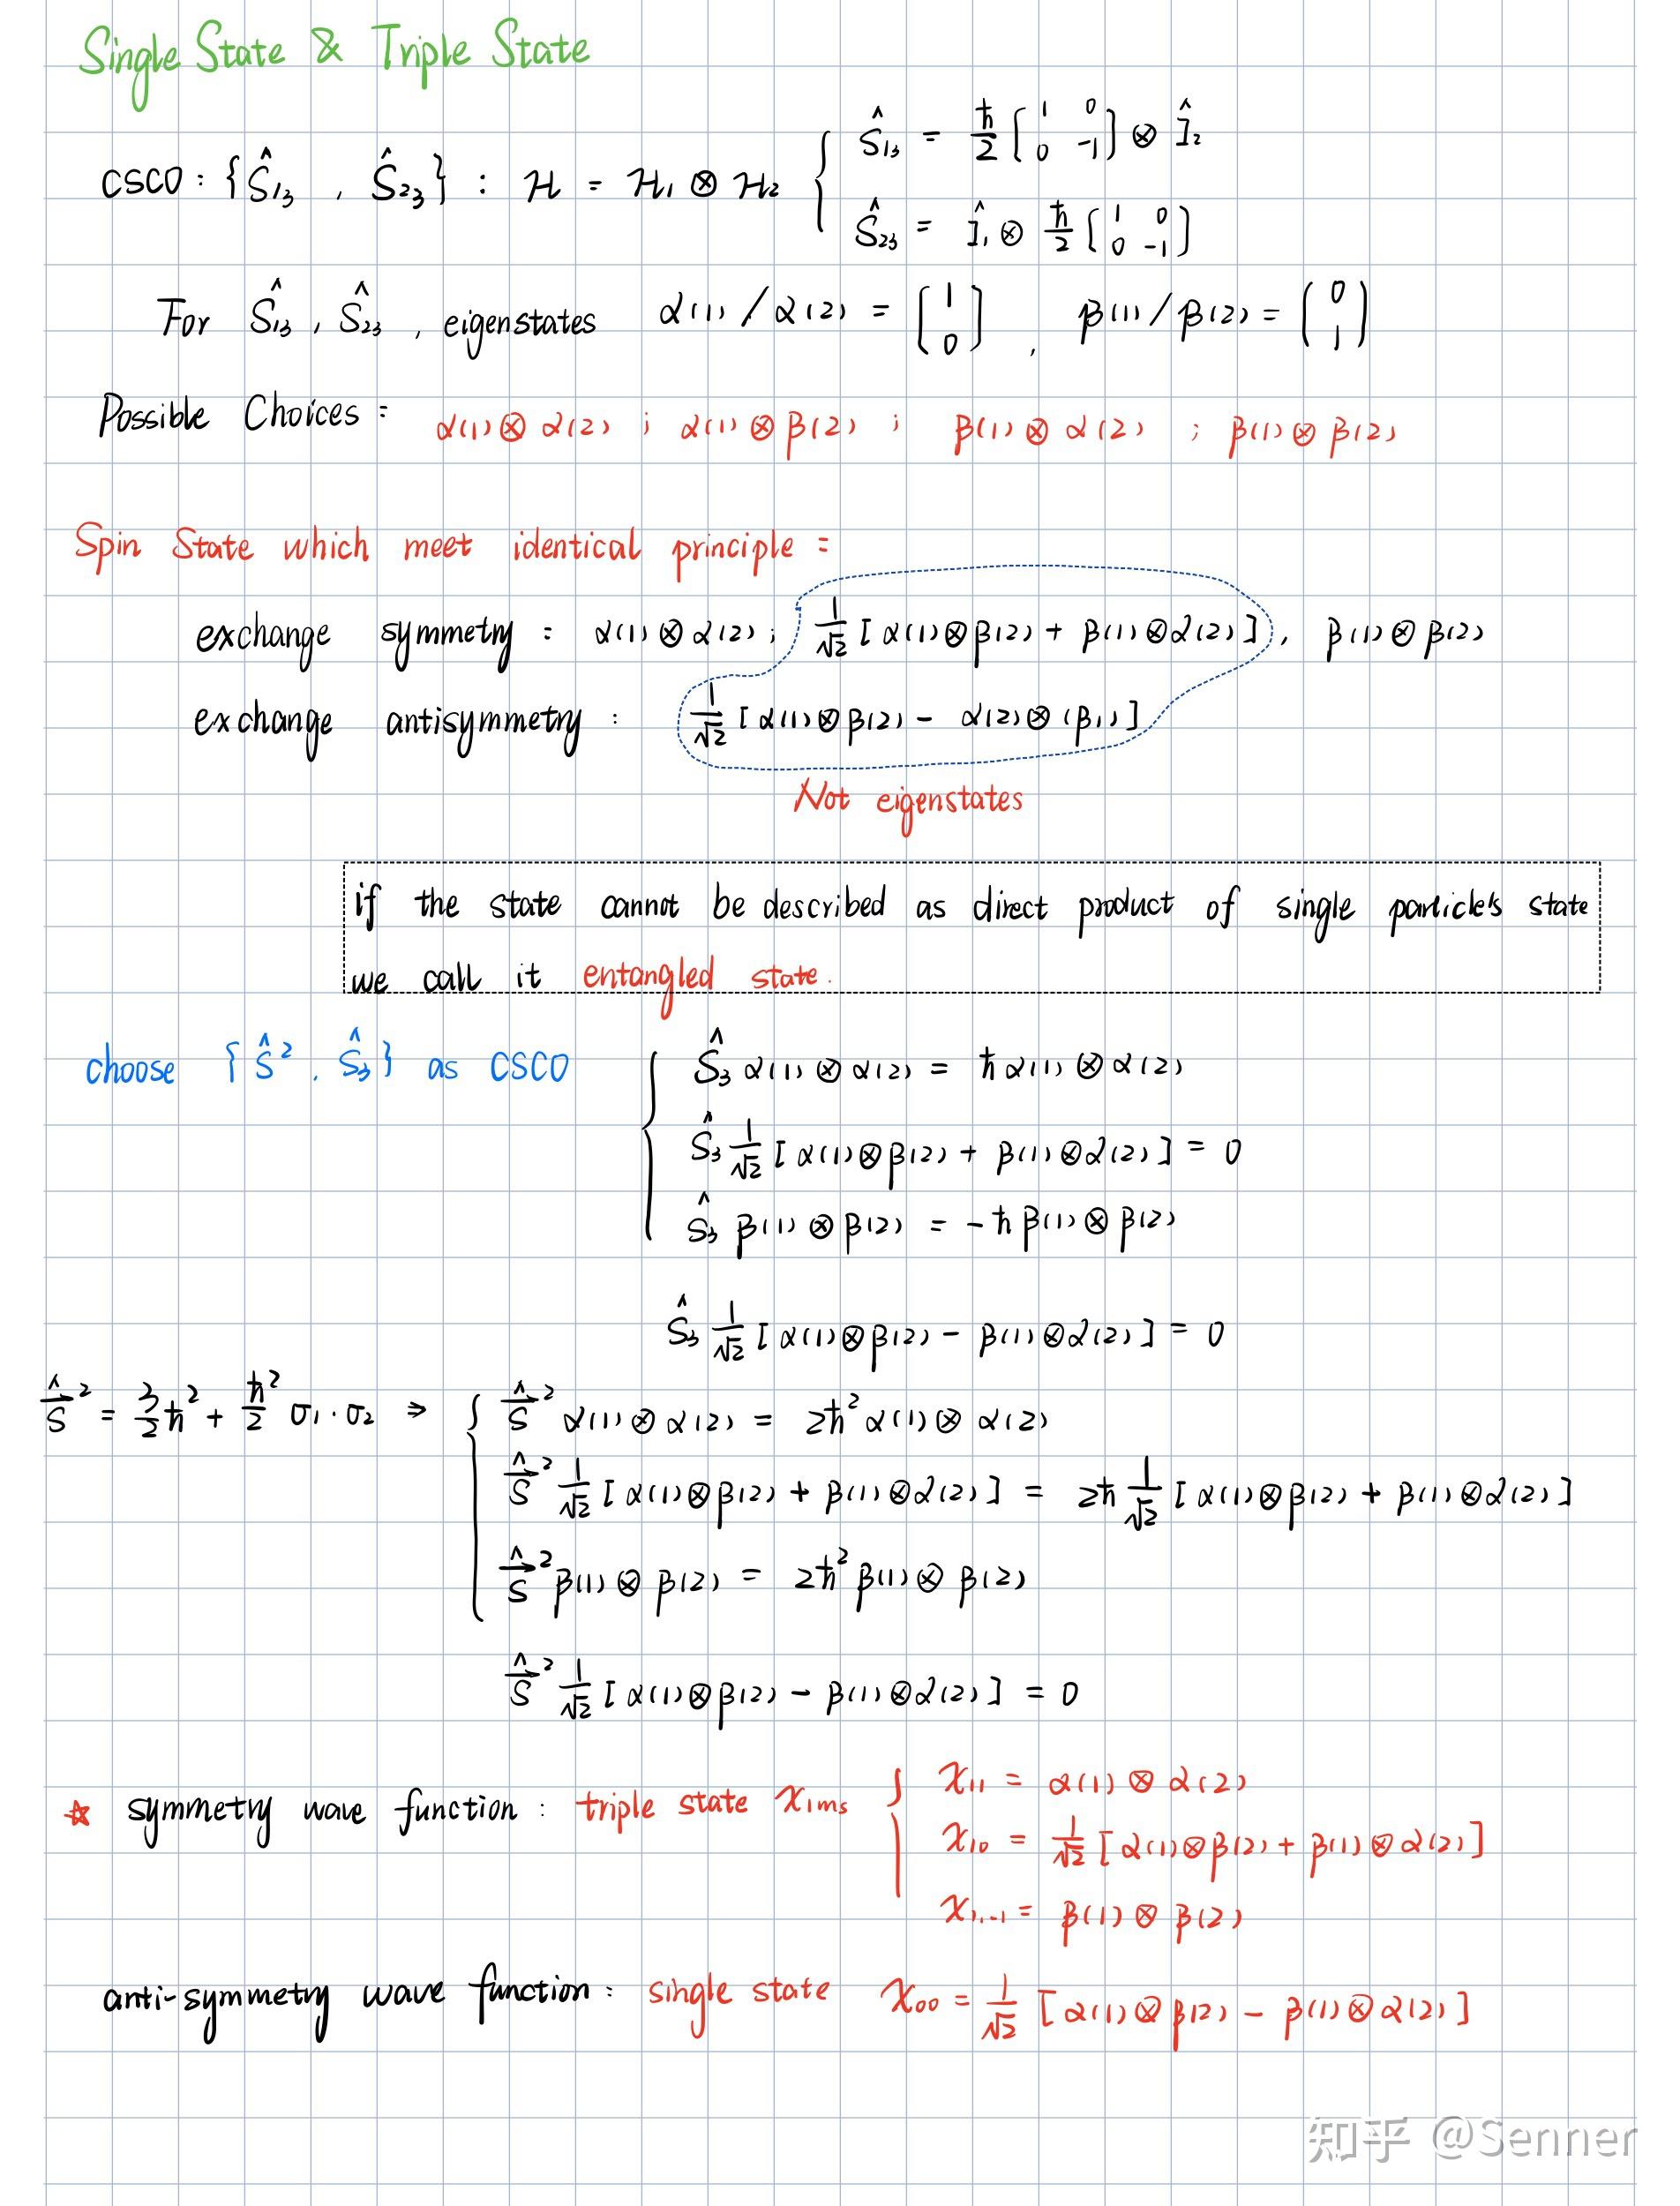 Single State & Triple State
CSCO : {Ŝ₁₃ , Ŝ₂₃} : H = H₁ ⊗ H₂ { Ŝ₁₃ = ħ/2 [1 0; 0 -1] ⊗ Î₂
Ŝ₂₃ = Î₁ ⊗ ħ/2 [1 0; 0 -1]
For Ŝ₁₃ , Ŝ₂₃ , eigenstates α(1) / α(2) = [1; 0] , β(1) / β(2) = (0; 1)
Possible Choices : α(1) ⊗ α(2) ; α(1) ⊗ β(2) ; β(1) ⊗ α(2) ; β(1) ⊗ β(2)
Spin State which meet identical principle :
exchange symmetry : α(1) ⊗ α(2) ; 1/√2 [ α(1) ⊗ β(2) + β(1) ⊗ α(2) ] , β(1) ⊗ β(2)
exchange antisymmetry : 1/√2 [ α(1) ⊗ β(2) - α(2) ⊗ (β1) ]
Not eigenstates
if the state cannot be described as direct product of single particle's state
we call it entangled state.
choose {Ŝ² , Ŝ₃} as CSCO { Ŝ₃ α(1) ⊗ α(2) = ħ α(1) ⊗ α(2)
Ŝ₃ 1/√2 [ α(1) ⊗ β(2) + β(1) ⊗ α(2) ] = 0
Ŝ₃ β(1) ⊗ β(2) = -ħ β(1) ⊗ β(2)
Ŝ₃ 1/√2 [ α(1) ⊗ β(2) - β(1) ⊗ α(2) ] = 0
Ŝ² = 3/2 ħ² + ħ²/2 σ₁ · σ₂ ⇒ { Ŝ² α(1) ⊗ α(2) = 2ħ² α(1) ⊗ α(2)
Ŝ² 1/√2 [ α(1) ⊗ β(2) + β(1) ⊗ α(2) ] = 2ħ 1/√2 [ α(1) ⊗ β(2) + β(1) ⊗ α(2) ]
Ŝ² β(1) ⊗ β(2) = 2ħ² β(1) ⊗ β(2)
Ŝ² 1/√2 [ α(1) ⊗ β(2) - β(1) ⊗ α(2) ] = 0
☆ symmetry wave function : triple state χ₁ms { χ₁₁ = α(1) ⊗ α(2)
χ₁₀ = 1/√2 [ α(1) ⊗ β(2) + β(1) ⊗ α(2) ]
χ₁,₋₁ = β(1) ⊗ β(2)
anti-symmetry wave function : single state χ₀₀ = 1/√2 [ α(1) ⊗ β(2) - β(1) ⊗ α(2) ]
知乎 @Senner